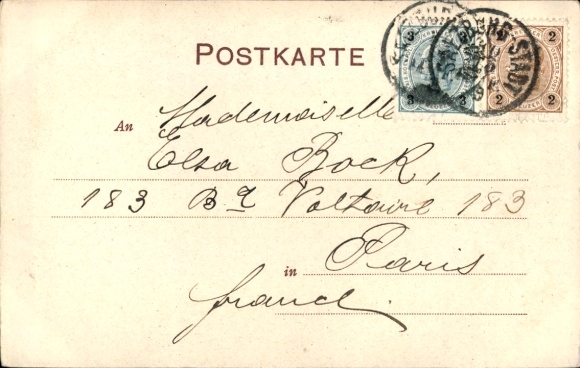 POSTKARTE
3 3 3 2 2 2 2
An Mademoiselle
Elsa Bock,
183 Bd Voltaire 183
in Paris
france.